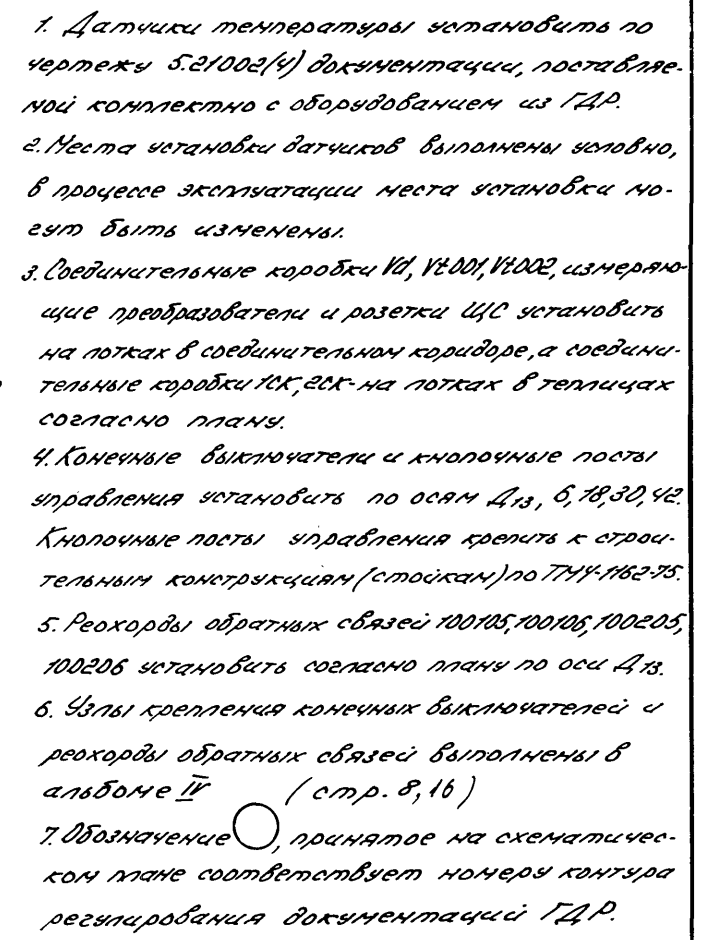 1. Датчики температуры установить по
чертежу 5.21002(4) документации, поставляе-
мой комплектно с оборудованием из ГДР.
2. Места установки датчиков выполнены условно,
в процессе эксплуатации места установки мо-
гут быть изменены.
3. Соединительные коробки Vd, Vt001, Vt002, измеряю-
щие преобразователи и розетки ЩС установить
на лотках в соединительном коридоре, а соедини-
тельные коробки 1СК, 2СК - на лотках в теплицах
согласно плану.
4. Конечные выключатели и кнопочные посты
управления установить по осям Д13, 6, 18, 30, 42.
Кнопочные посты управления крепить к строи-
тельным конструкциям (стойкам) по ТМ4-1162-75.
5. Реохорды обратных связей 100105, 100106, 100205,
100206 установить согласно плану по оси Д13.
6. Узлы крепления конечных выключателей и
реохорды обратных связей выполнены в
альбоме IV (стр. 8, 16)
7. Обозначение , принятое на схематичес-
ком плане соответствует номеру контура
регулирования документаций ГДР.